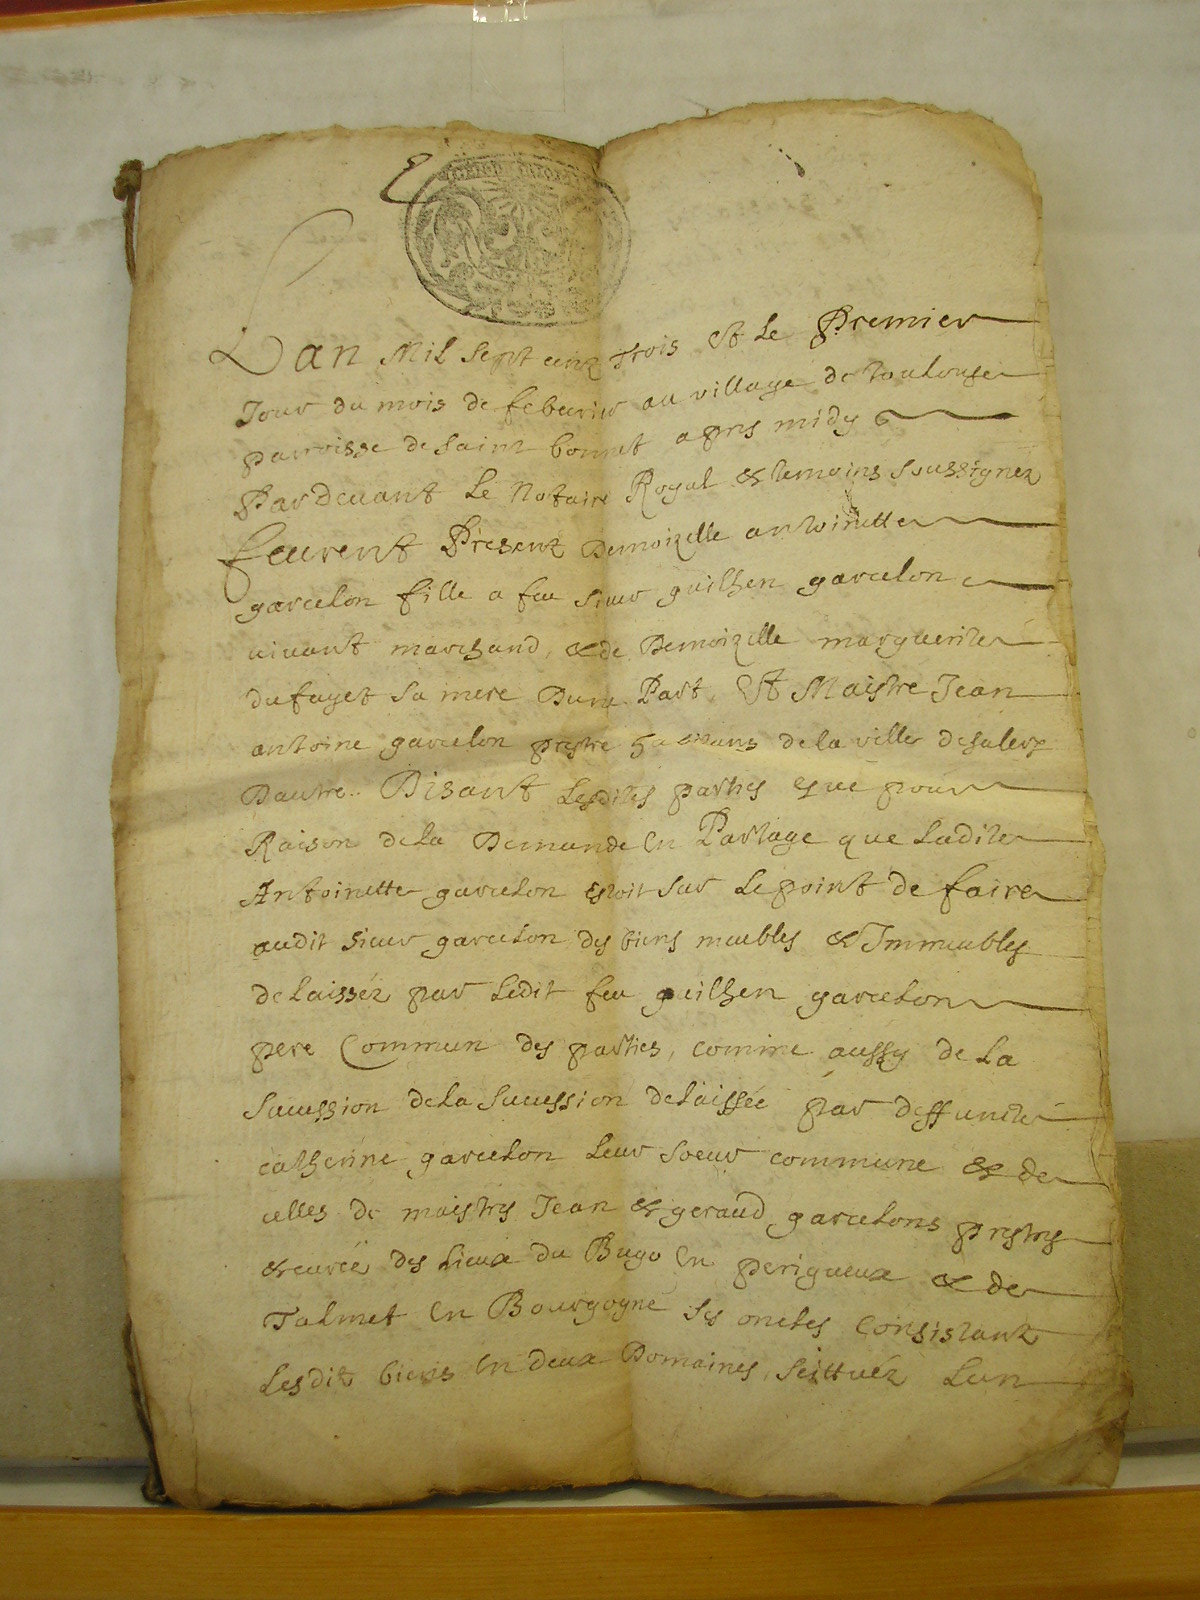 Lan Mil Sept cenz Trois Et Le Premier
Jour du mois de feburier au village de toulouse
parroisse de saint bonnet apres midy
Pardevant Le Notaire Royal & temoins soussignez
feurent Presenz Demoizelle antoinette
garcelon fille a feu sieur guilhen garcelon
vivant marchand, & de Demoizelle marguerite
du fayet sa mere Dune Part, Et Maistre Jean
antoine garcelon prestre de la ville de salerz
Dautre.. Disant Lesdites parties que pour
Raison de la Demande En Partage que Ladite
Antoinette garcelon estoit sur Le point de faire
audit sieur garcelon des biens meubles & Immeubles
delaisséz par Ledit feu guilhen garcelon
pere Commun des parties, comme aussy de La
Sucession de La Sucession delaissée par deffuncte
catherine garcelon Leur soeur commune & de
celles de maistres Jean & geraud garcelons prestres
& cureé des Lieux du Bugo En perigueux & de
Talmet En Bourgogne ses oncles Consistant
Lesdit biens En deux Domaines, seittuéz Lun